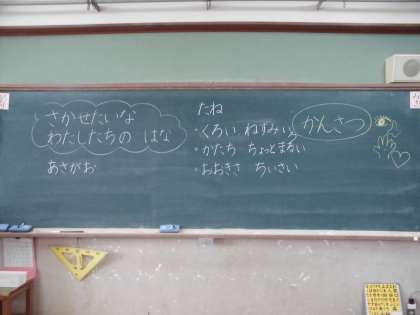 さかせたいな
わたしたちの はな
あさがお
たね
・くろい ねずみいろ
・かたち ちょっとまるい
・おおきさ ちいさい
かんさつ